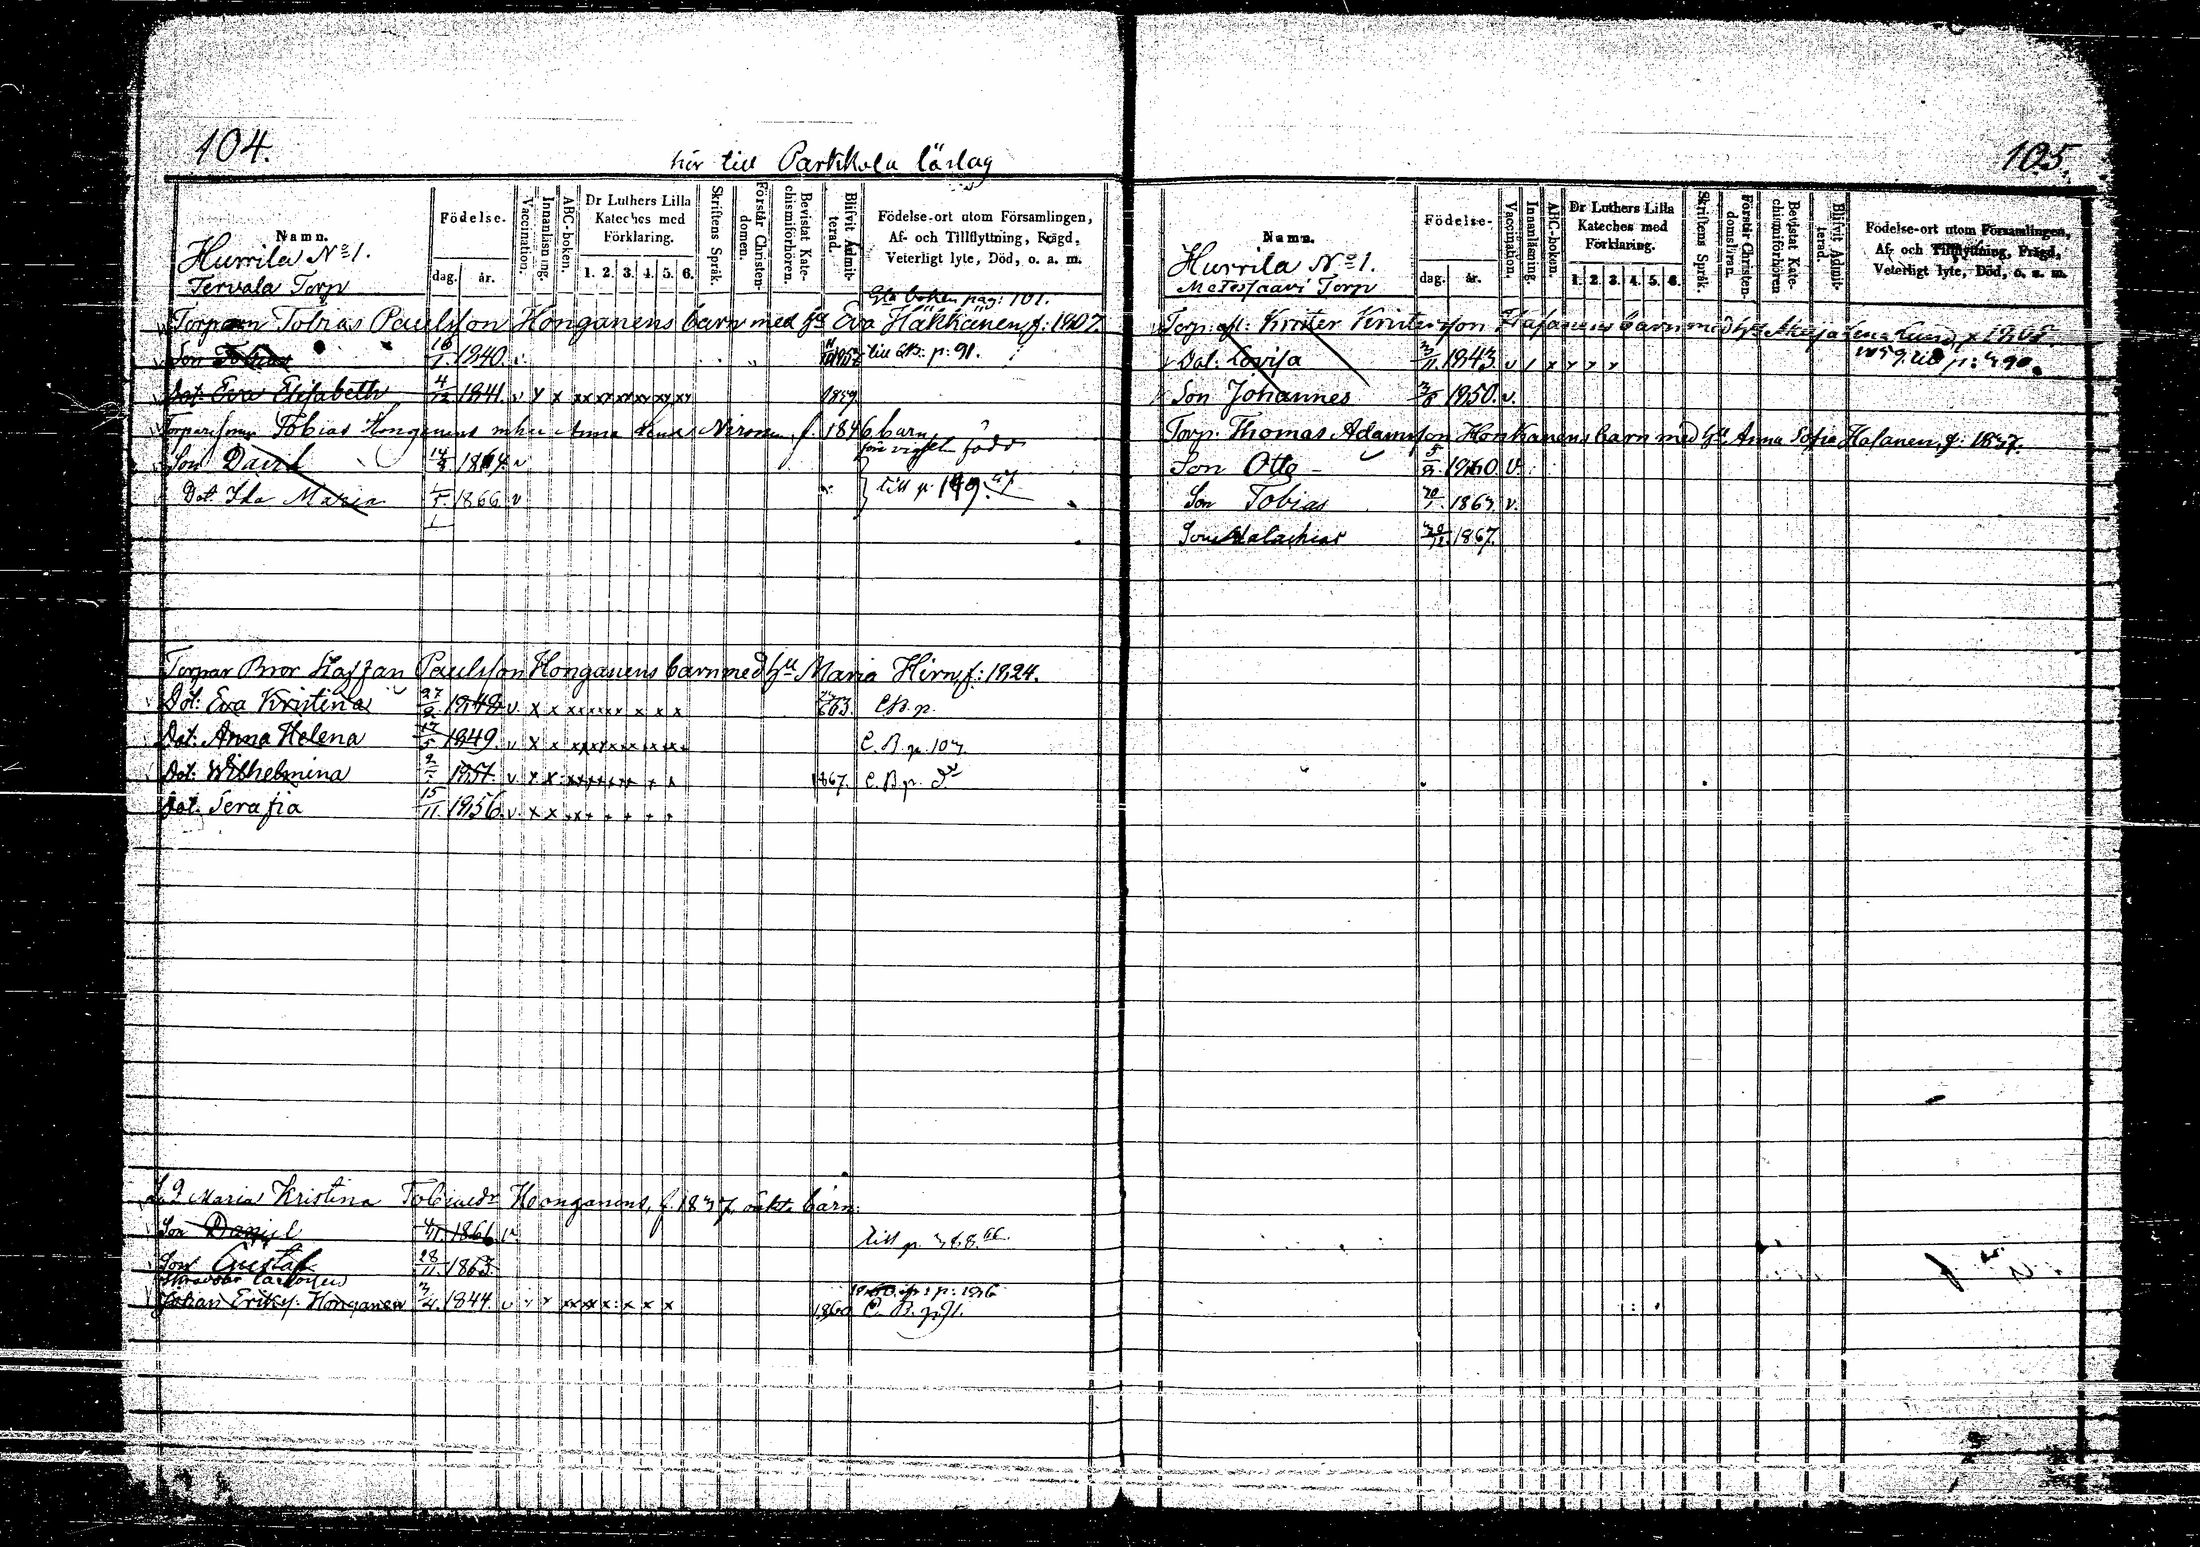 104.
hör till Partikala läslag
Namn.
Hurrila No 1.
Tervala Torp
Födelse.
dag. år.
Vaccination.
Innanläsning.
ABC-boken.
Dr Luthers Lilla
Kateches med
Förklaring.
1. 2. 3. 4. 5. 6.
Skriftens Språk.
Förstår Christen-
domen.
Bevistat Kate-
chismiförhören.
Blifvit Admit-
terad.
Födelse-ort utom Församlingen,
Af- och Tillflyttning, Frägd,
Veterligt lyte, Död, o. a. m.
Gla boken pag: 101.
Torparn Tobias Paulsson Honganens barn med hu Eva Häkkänen, f: 1807.
Son Tobias 16/1. 1840. v. till CB. p: 91.
Dot: Eva Elisabeth 4/12 1841. v x x xx xx xx xx xx xx 1859
Torpareson Tobias Honganens m hu Anna Nironen f. 1846 barn
födde
Son David 14/3 1864. v
Dot. Ida Maria 1/5. 1866. v till p. 149.
Torpar Bror Staffan Paulsson Honganens barn med hu Maria Hirn, f: 1824.
Dot: Eva Kristina 27/2 1848 v. x x xxxxxx x x x 63. CB. p.
Dot: Anna Helena 17/5 1849. v x x C. B. p. 107
Dot: Wilhelmina 1851. v. x x 1867. C. B. p.
Dot. Serafia 15/11. 1856. v. x x
Maria Kristina Tobiaedr Honganens, f. 1837, oäkta barn:
Son Daniel /11. 1861 v. till p. 388.
Son Gustaf 28/11. 1863.
Johan Eriks: Honganen 3/4. 1844. v 1860 C. B. p 91.
105.
Namn.
Hurrila No 1.
Metessaari Torp
Födelse-
dag. år.
Vaccination.
Innanläsning.
ABC-bokon.
Dr Luthers Lilla
Kateches med
Förklaring.
1. 2. 3. 4. 5. 6.
Skriftens Språk.
Förstår Christen-
domsläran.
Bevistat Kate-
chismiförhören
Blifvit Admit-
terad.
Födelse-ort utom Församlingen,
Af- och Tillflyttning, Frägd,
Veterligt lyte, Död, o. a. m.
Torp: afl: Krister Kristersson Hafanens barn med hu Lena Lund, f 1808.
Dot: Lovisa 3/11. 1843. v / x x x x
Son Johannes 3/8 1850. v.
Torp: Thomas Adamsson Honkanens barn med hu Anna Sofia Hafanen, f: 1837.
Son Otto 5/2. 1860. v.
Son Tobias 20/1. 1863. v.
Son Malachias 1867.